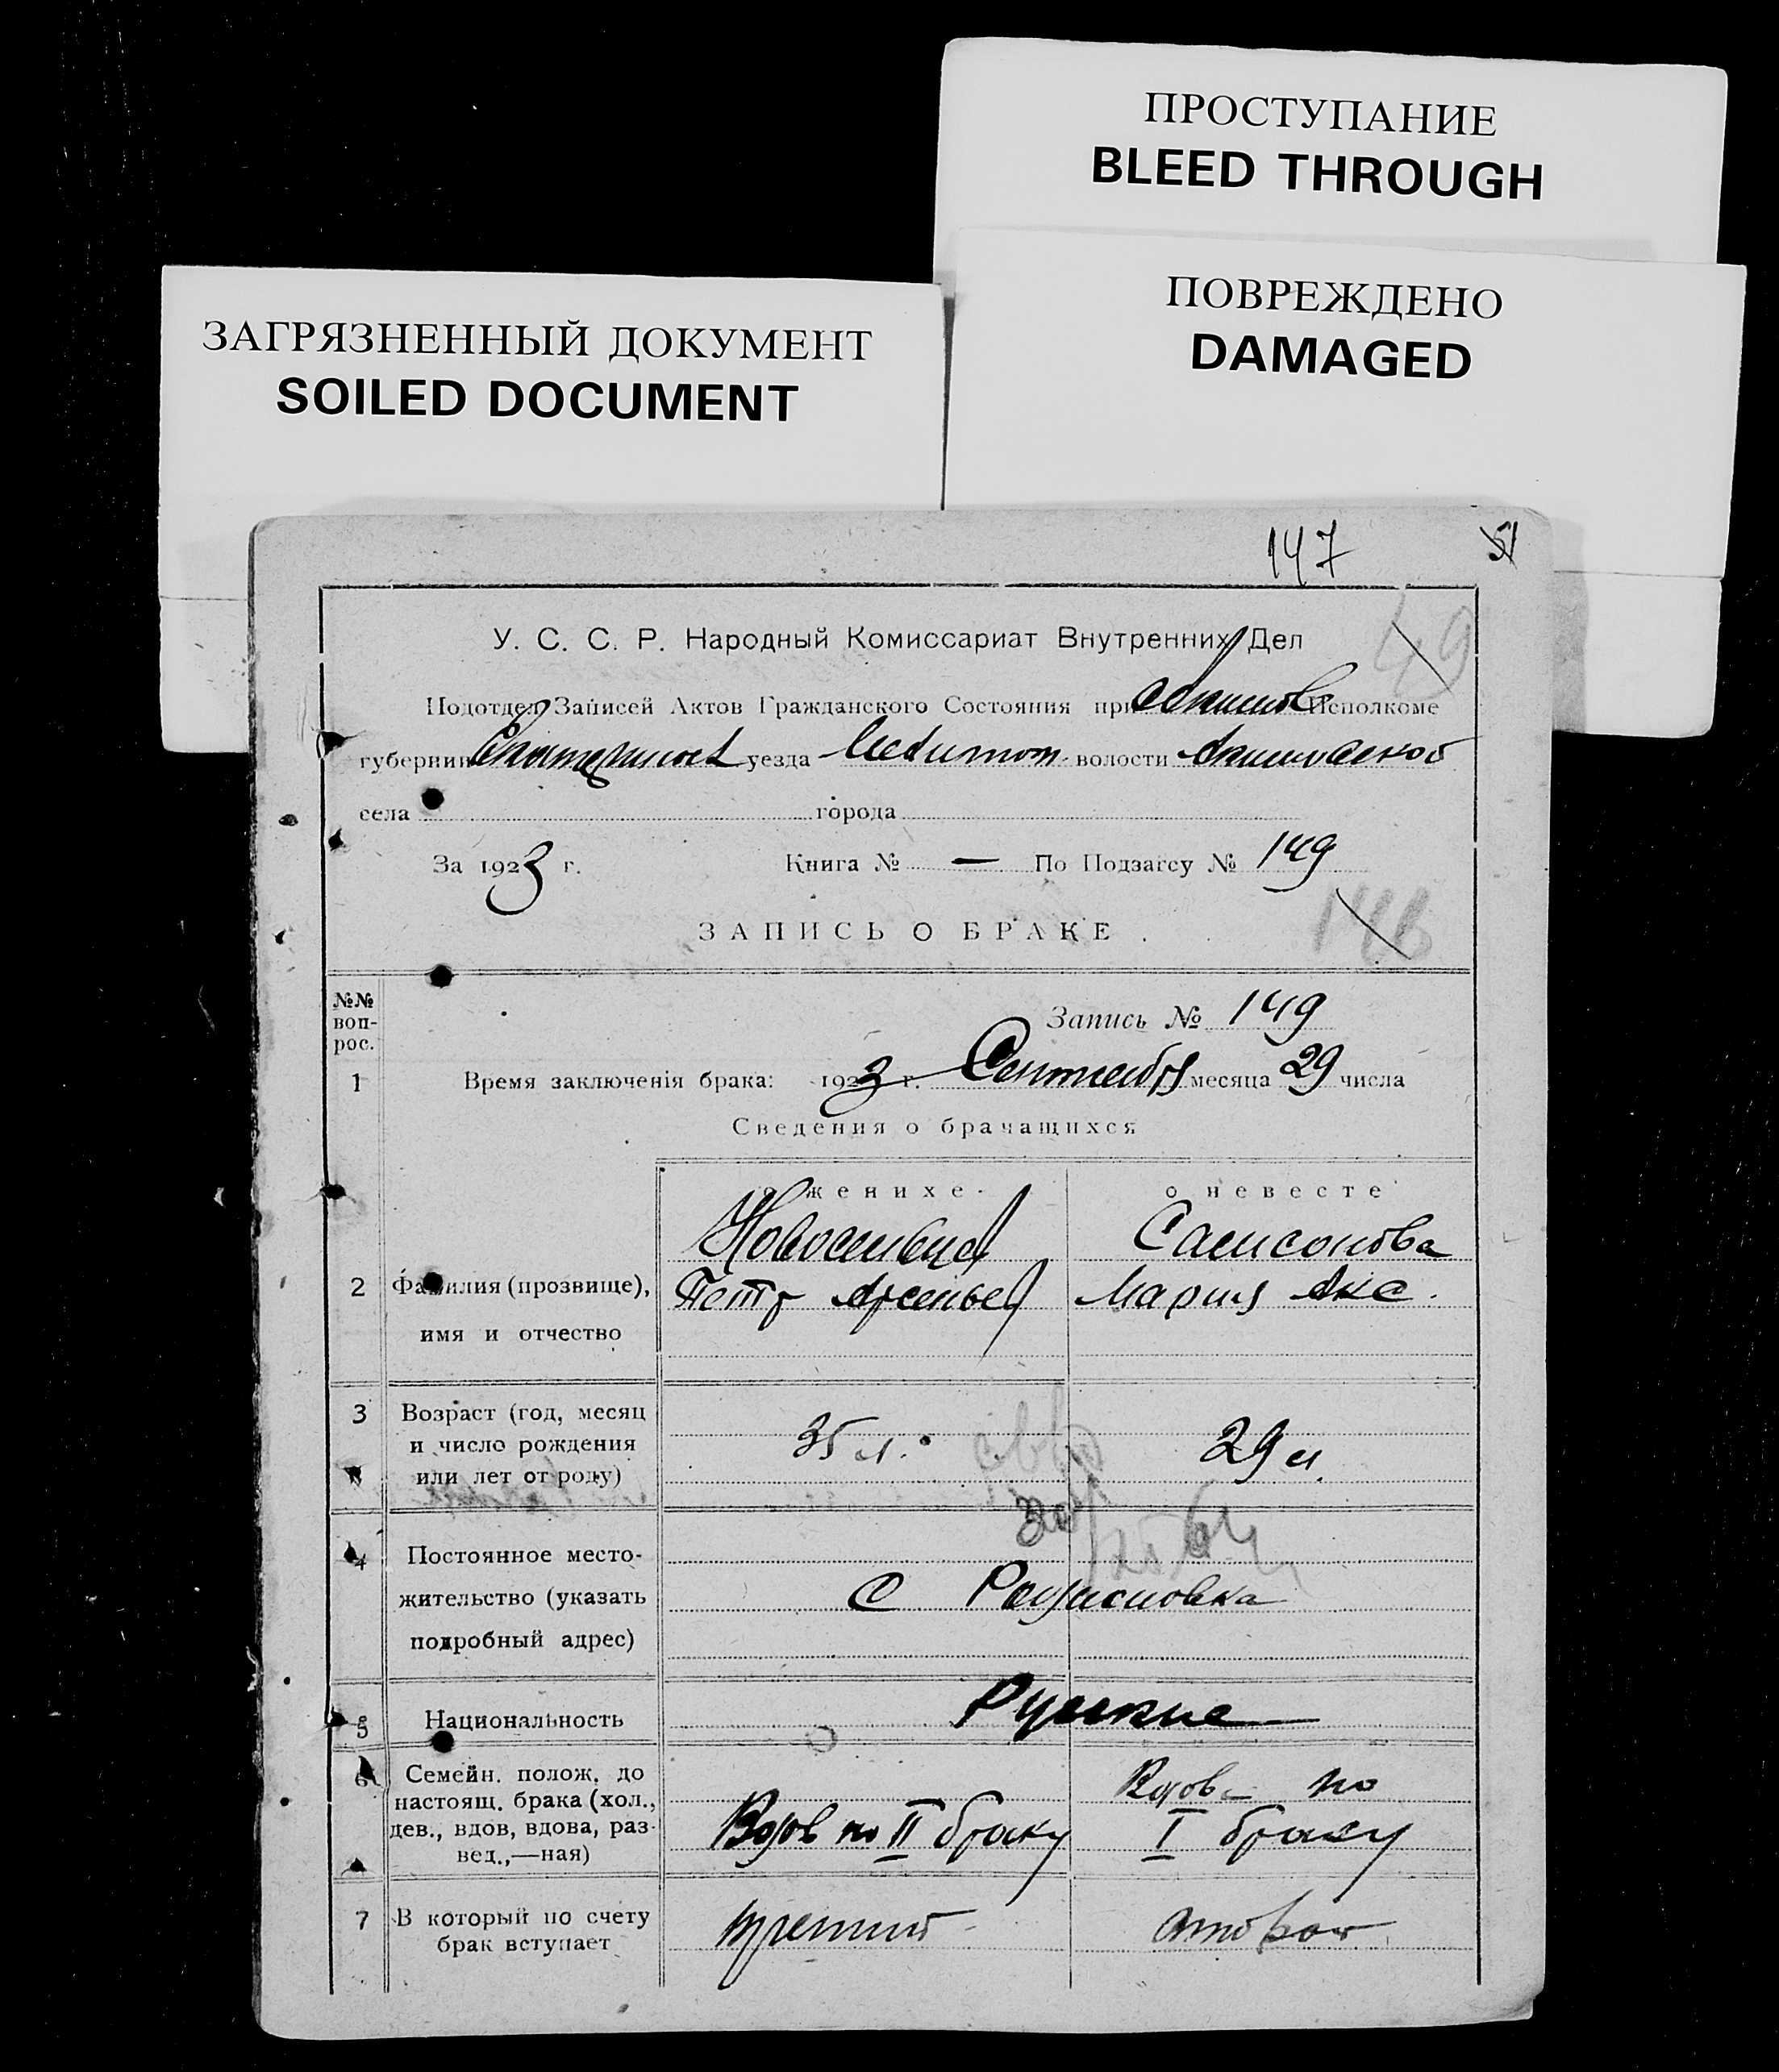 ПРОСТУПАНИЕ
BLEED THROUGH
ПОВРЕЖДЕНО
DAMAGED
ЗАГРЯЗНЕННЫЙ ДОКУМЕНТ
SOILED DOCUMENT
147 51
49
У. С. С. Р. Народный Комиссариат Внутренних Дел
Подотдел Записей Актов Гражданского Состояния при Акимов Исполкоме
губернии Екатеринослав уезда Мелитоп. волости Акимовской
села города
За 1923 г. Книга № — По Подзагсу № 149
146
ЗАПИСЬ О БРАКЕ.
№№ воп-рос.
Запись № 149
1 Время заключенія брака: 1923 г. Сентября месяца 29 числа
Сведения о брачащихся
о женихе. о невесте
Самсонова
2 Фамилия (прозвище), Петр Арсеньев Мария Акс.
имя и отчество
3 Возраст (год, месяц
и число рождения 35 л. 29 л.
или лет от роду)
4 Постоянное место-
жительство (указать с
подробный адрес)
5 Национальность Русские
6 Семейн. полож. до Вдова по
настоящ. брака (хол.,
дев., вдов, вдова, раз- Вдов по II браку I браку
вед.,—ная)
7 В который по счету третий второй
брак вступает